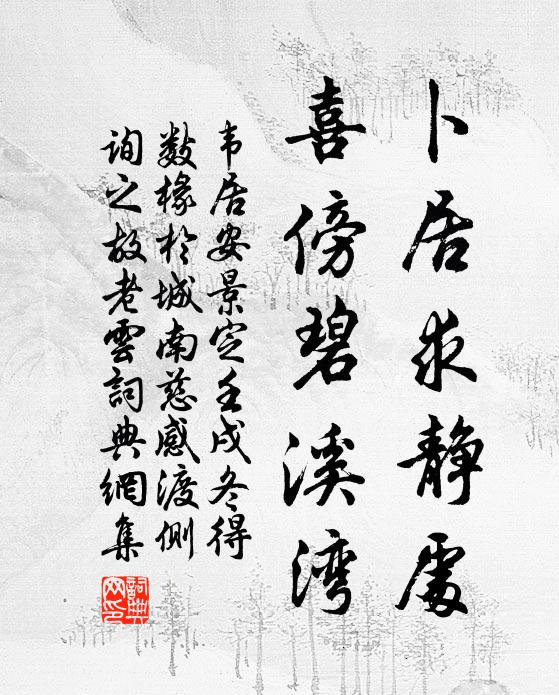 卜居求静處
喜傍碧溪湾
韦居安景定壬戌冬得
数椽於城南慈感渡侧
询之故老雲詞典網集